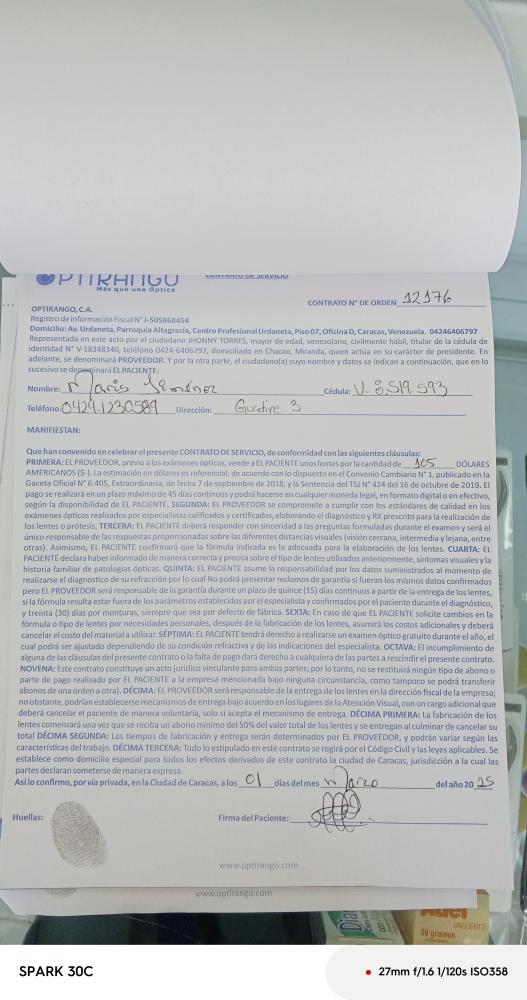 OPTIRANGO
Más que una Óptica
CONTRATO DE SERVICIO
CONTRATO N° DE ORDEN 12176
OPTIRANGO, C.A.
Registro de Información Fiscal N° J-505868454
Domicilio: Av. Urdaneta, Parroquia Altagracia, Centro Profesional Urdaneta, Piso 07, Oficina D, Caracas, Venezuela. 04246406797
Representada en este acto por el ciudadano JHONNY TORRES, mayor de edad, venezolano, civilmente hábil, titular de la cédula de
identidad N° V-18348340, teléfono 0424-6406797, domiciliado en Chacao, Miranda, quien actúa en su carácter de presidente. En
adelante, se denominará PROVEEDOR. Y por la otra parte, el ciudadano(a) cuyo nombre y datos se indican a continuación, que en lo
sucesivo se denominará EL PACIENTE:
Nombre: Maria Jiménez Cédula: V-8.519.593
Teléfono: 0424-1230589 Dirección: 3
MANIFIESTAN:
Que han convenido en celebrar el presente CONTRATO DE SERVICIO, de conformidad con las siguientes cláusulas:
PRIMERA: EL PROVEEDOR, previo a los exámenes ópticos, vende a EL PACIENTE unos lentes por la cantidad de 105 DÓLARES
AMERICANOS ($-). La estimación en dólares es referencial, de acuerdo con lo dispuesto en el Convenio Cambiario N° 1, publicado en la
Gaceta Oficial N° 6.405, Extraordinaria, de fecha 7 de septiembre de 2018, y la Sentencia del TSJ N° 424 del 16 de octubre de 2019. El
pago se realizará en un plazo máximo de 45 días continuos y podrá hacerse en cualquier moneda legal, en formato digital o en efectivo,
según la disponibilidad de EL PACIENTE. SEGUNDA: EL PROVEEDOR se compromete a cumplir con los estándares de calidad en los
exámenes ópticos realizados por especialistas calificados y certificados, elaborando el diagnóstico y RX prescrito para la realización de
los lentes o prótesis. TERCERA: EL PACIENTE deberá responder con sinceridad a las preguntas formuladas durante el examen y será el
único responsable de las respuestas proporcionadas sobre las diferentes distancias visuales (visión cercana, intermedia y lejana, entre
otras). Asimismo, EL PACIENTE confirmará que la fórmula indicada es la adecuada para la elaboración de los lentes. CUARTA: EL
PACIENTE declara haber informado de manera correcta y precisa sobre el tipo de lentes utilizados anteriormente, síntomas visuales y la
historia familiar de patologías ópticas. QUINTA: EL PACIENTE asume la responsabilidad por los datos suministrados al momento de
realizarse el diagnostico de su refracción por lo cual No podrá presentar reclamos de garantía si fueran los mismos datos confirmados
pero EL PROVEEDOR será responsable de la garantía durante un plazo de quince (15) días continuos a partir de la entrega de los lentes,
si la fórmula resulta estar fuera de los parámetros establecidos por el especialista y confirmados por el paciente durante el diagnóstico,
y treinta (30) días por monturas, siempre que sea por defecto de fábrica. SEXTA: En caso de que EL PACIENTE solicite cambios en la
fórmula o tipo de lentes por necesidades personales, después de la fabricación de los lentes, asumirá los costos adicionales y deberá
cancelar el costo del material a utilizar. SÉPTIMA: EL PACIENTE tendrá derecho a realizarse un examen óptico gratuito durante el año, el
cual podrá ser ajustado dependiendo de su condición refractiva y de las indicaciones del especialista. OCTAVA: El incumplimiento de
alguna de las cláusulas del presente contrato o la falta de pago dará derecho a cualquiera de las partes a rescindir el presente contrato.
NOVENA: Este contrato constituye un acto jurídico vinculante para ambas partes; por lo tanto, no se restituirá ningún tipo de abono o
parte de pago realizado por EL PACIENTE a la empresa mencionada bajo ninguna circunstancia, como tampoco se podrá transferir
abonos de una orden a otra). DÉCIMA: EL PROVEEDOR será responsable de la entrega de los lentes en la dirección fiscal de la empresa;
no obstante, podrían establecerse mecanismos de entrega bajo acuerdo en los lugares de la Atención Visual, con un cargo adicional que
deberá cancelar el paciente de manera voluntaria, solo si acepta el mecanismo de entrega. DÉCIMA PRIMERA: La fabricación de los
lentes comenzará una vez que se reciba un abono mínimo del 50% del valor total de los lentes y se entregan al culminar de cancelar su
total DÉCIMA SEGUNDA: Los tiempos de fabricación y entrega serán determinados por EL PROVEEDOR, y podrán variar según las
características del trabajo. DÉCIMA TERCERA: Todo lo estipulado en este contrato se regirá por el Código Civil y las leyes aplicables. Se
establece como domicilio especial para todos los efectos derivados de este contrato la ciudad de Caracas, jurisdicción a la cual las
partes declaran someterse de manera expresa.
Así lo confirmo, por vía privada, en la Ciudad de Caracas, a los 01 días del mes Marzo del año 2025
Huellas: Firma del Paciente:
www.optirango.com
www.optirango.com
UNGUENTO
50 gramos
SPARK 30C
27mm f/1.6 1/120s ISO358